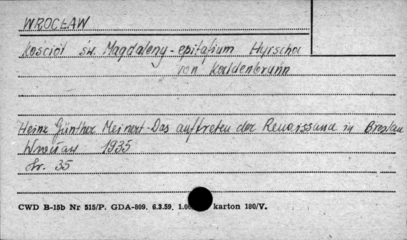 WROCŁAW
Kościół św. Magdaleny - epitafium Hyrscha
von Kaldenbrunn
Heinz Günther Meinert - Das auftreten der Renaissance in Breslau
1935
str. 35
CWD B-15b Nr 515/P. GDA-809. 6.3.59, karton 180/V.